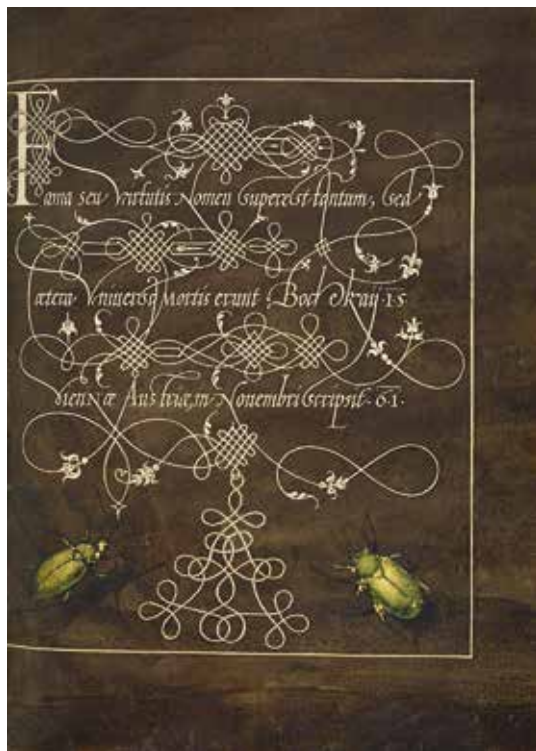 Fama seu virtutis Nomen superest tantum, sed
cætera Vniuersa Mortis erunt; Bocskaÿ · 15
ViennÆ Austriæ, in Nouembri scripsit · 61 ·